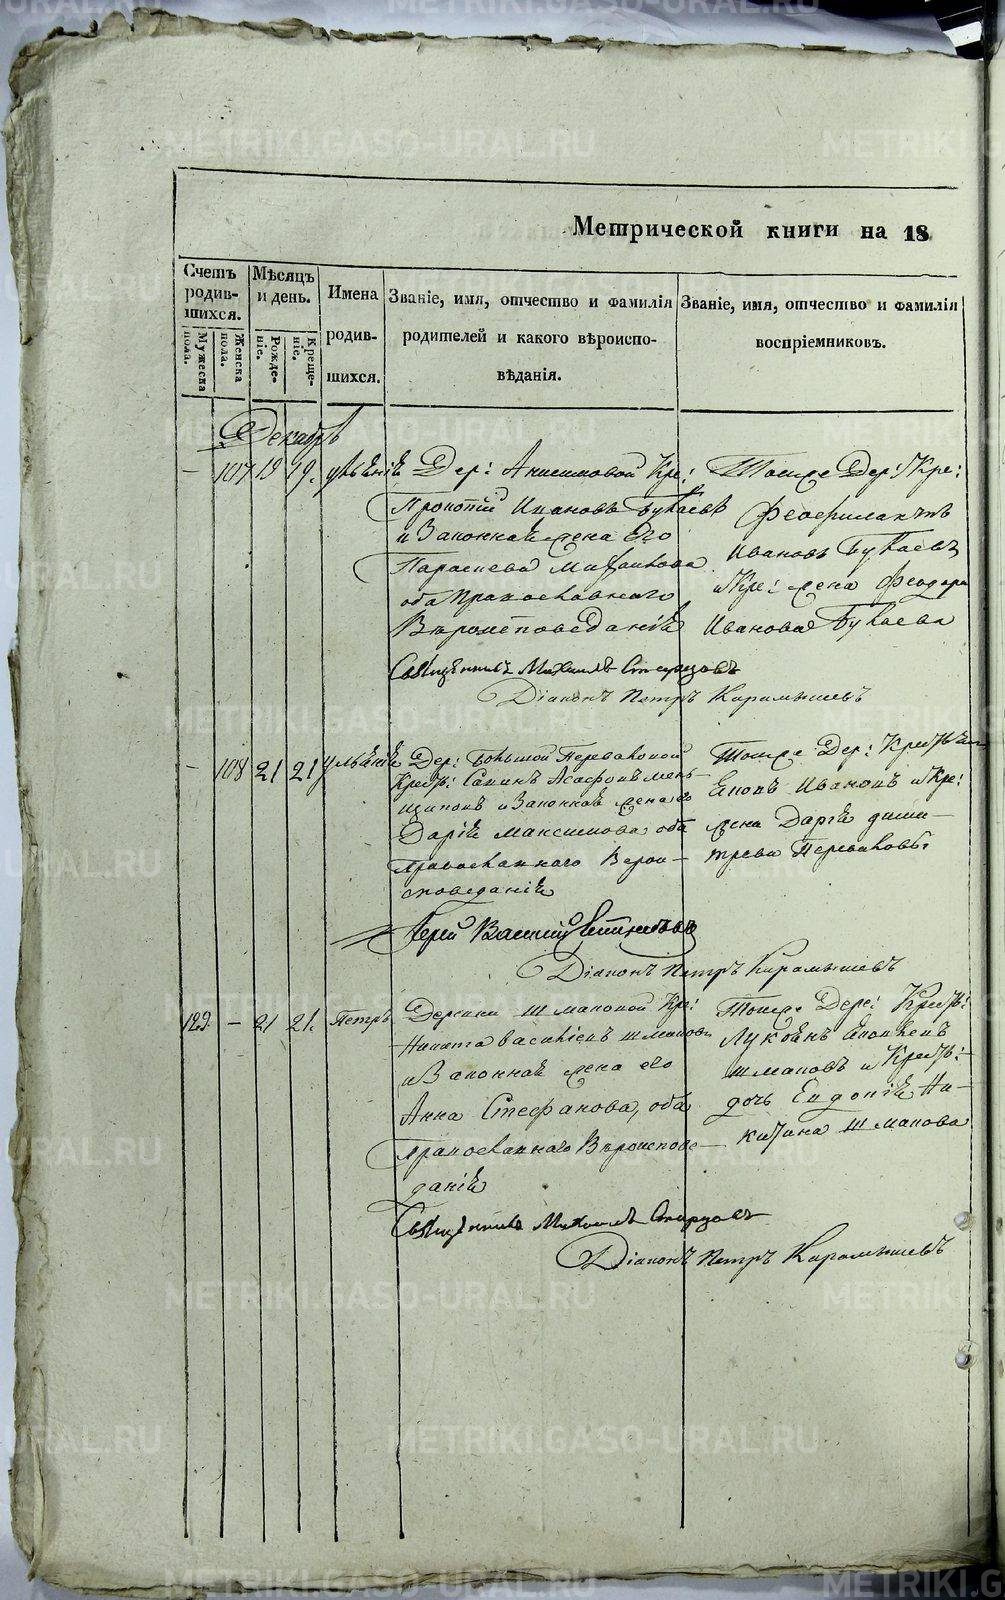 METRIKI.GASO-URAL.RU
Метрической книги на 18
Счетъ родив- шихся.
Мужеска пола.
Женска пола.
Мѣсяцъ и день.
Рожде- ніе.
Креще- ніе.
Имена
родив-
шихся.
Званіе, имя, отчество и фамилія
родителей и какого вѣроиспо-
вѣданія.
Званіе, имя, отчество и фамилія
воспріемниковъ.
Декабрь
107 19 19.
Дер: Анисимовой Кре:
Прокопій Ивановъ Букаевъ
и Законная жена его
Параскева Михайлова
оба Православнаго
Вѣроисповеданія
Тойже Дер: Кре:
Феофилактъ
Ивановъ Букаевъ
и Кре: жена Феодора
Иванова Букаева
Священникъ Михаилъ Стерховъ
Діаконъ Петръ Карамышевъ
108 21 21 Уліянія
Дер: Большой Перваковой
и Законная жена его
Дарія Максимова оба
православнаго Верои-
споведанія
Тойже Дер:
Ивановъ и Кре:
жена Дарія Дими-
трева Первакова
Іерей Василий
Діаконъ Петръ Карамышевъ
129. - 21 21. Петръ
Деревни Шмаковой Кре:
Никита Василіевъ Шмаковъ
и Законная жена его
Анна Стефанова, оба
православнаго Вѣроиспове-
данія
Тойже Дере: Крест:
Шмаковъ и Крест:
дочь Евдокія Ни-
китина Шмакова
Священникъ Михаилъ Стерховъ
Діаконъ Петръ Карамышевъ